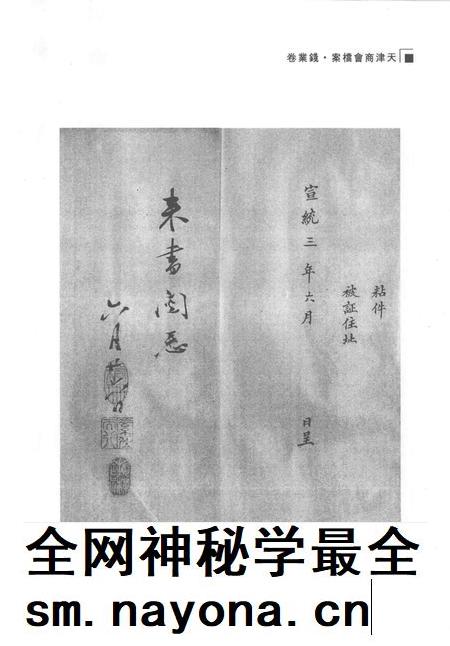 天津商會檔案·錢業卷
粘件
被証住址
宣統三年六月 日呈
来書閱悉
六月廿日
全网神秘学最全
sm.nayona.cn